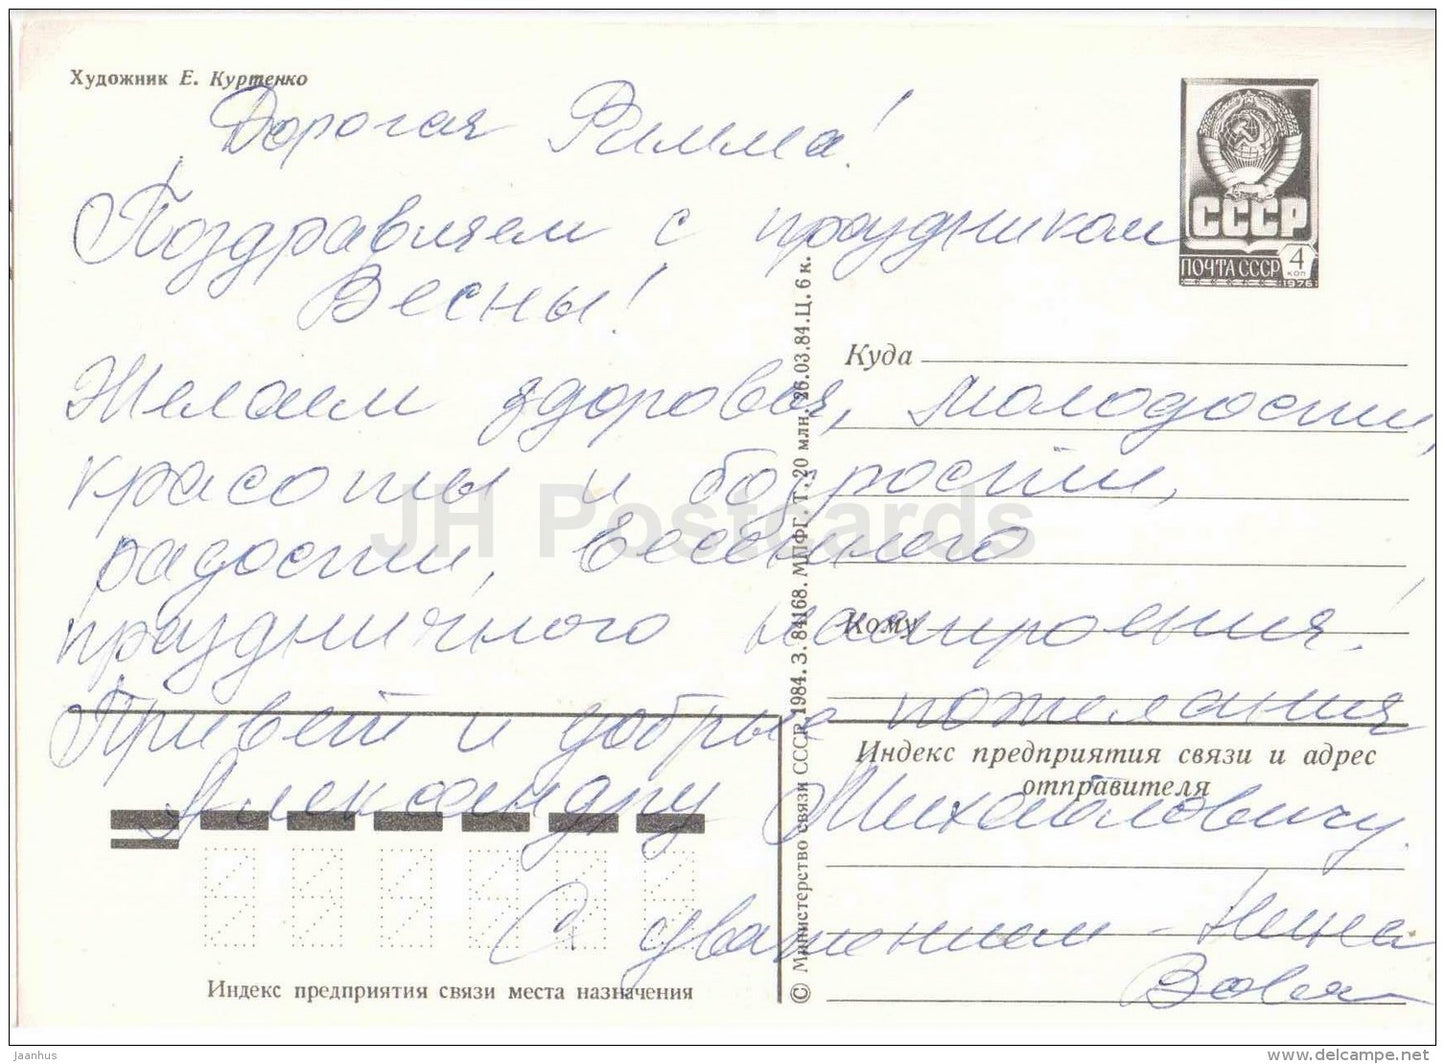 Художник Е. Куртенко
Дорогая Римма!
Поздравляем с праздником
Весны!
Желаем здоровья, молодости,
красоты и бодрости,
радости, весеннего
праздничного настроения!
Привет и добрые пожелания
Александру Михайловичу.
С уважением - Нина
Вова
СССР
ПОЧТА СССР 4
КОП
1976
Куда
Кому
Индекс предприятия связи и адрес
отправителя
Индекс предприятия связи места назначения
© Министерство связи СССР, 1984. З. 84168. МПФГ. Т. 20 млн. 26.03.84. Ц. 6 к.
JH Postcards
jaanhus
www.delcampe.net